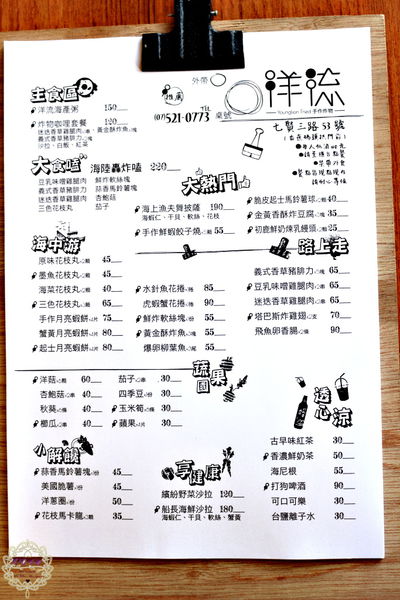 外帶
桌號
推薦
洋流
Youngllon Fried 手作炸物
TEL
(07)521-0773
七賢三路53號
主食區
洋流海產粥 150
炸物咖哩套餐 120
迷迭香草雞腿肉、黃金酥炸魚
義式香草豬腓力
沙拉、白飯、紅茶
大食嗑 海陸轟炸嗑 220
豆乳味噌雞腿肉 鮮炸軟絲塊
義式香草豬腓力 蒜香馬鈴薯塊
迷迭香草雞腿肉 杏鮑菇
三色花枝丸 茄子
大熱門
海上漁夫舞披薩 190
海蝦仁、干貝、軟絲、花枝
手作鮮蝦餃子燒 55
脆皮起士馬鈴薯球 40
金黃香酥炸豆腐 35
初鹿鮮奶煉乳饅頭 25
海中游
原味花枝丸 45
墨魚花枝丸 45
海菜花枝丸 40
三色花枝丸 65
手作月亮蝦餅 75
蟹黃月亮蝦餅 80
起士月亮蝦餅 80
水針魚花捲 85
虎蝦蟹花捲 90
鮮炸軟絲塊 55
黃金酥炸魚 55
爆卵柳葉魚 55
路上走
義式香草豬腓力 65
豆乳味噌雞腿肉 65
迷迭香草雞腿肉 65
塔巴斯炸雞翅 70
飛魚卵香腸 90
蔬果園
洋菇 60
杏鮑菇 40
秋葵 40
櫛瓜 40
茄子 30
四季豆 30
玉米筍 30
蘋果 30
透心涼
古早味紅茶 30
香濃鮮奶茶 50
海尼根 55
打狗啤酒 90
可口可樂 30
台鹽離子水 30
小解饞
蒜香馬鈴薯塊 45
美國脆薯 45
洋蔥圈 50
花枝馬卡龍 35
享健康
繽紛野菜沙拉 120
船長海鮮沙拉 180
海蝦仁、干貝、軟絲、蟹黃